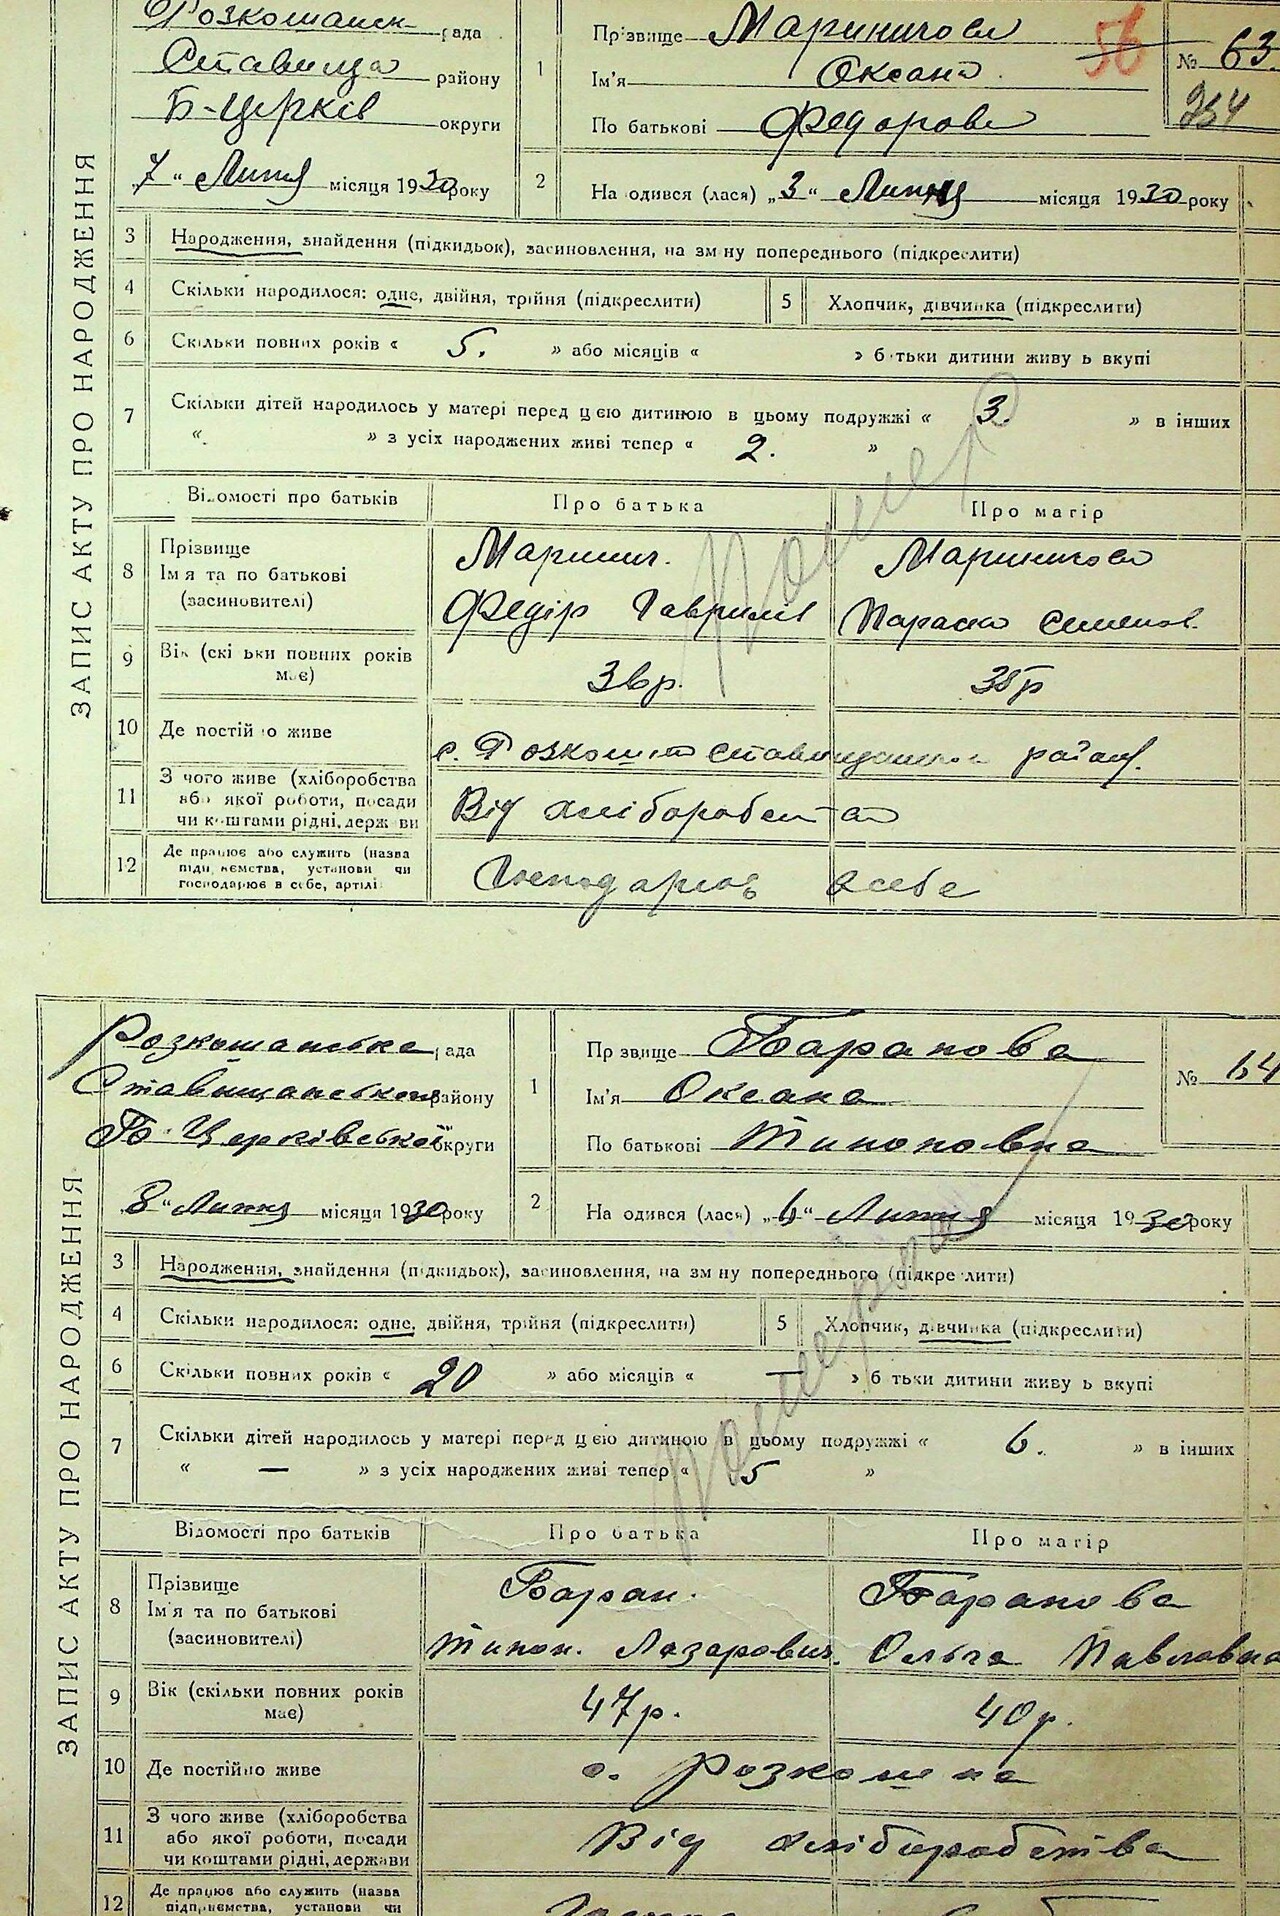 ЗАПИС АКТУ ПРО НАРОДЖЕННЯ
Розкошанськ рада
Ставища району
Б-Церків округи
7 " Липня місяця 1930 року
1 Пр звище Мариничова
Ім'я Оксана
По батькові Федорова
56
№ 63
254
2 На одився (лася) „ 3 " Липня місяця 1930 року
3 Народження, знайдення (підкидьок), засиновлення, на зм ну попереднього (підкреслити)
4 Скільки народилося: одне, двійня, трійня (підкреслити) 5 Хлопчик, дівчинка (підкреслити)
6 Скільки повних років « 5. » або місяців « » б тьки дитини живу ь вкупі
7 Скільки дітей народилось у матері перед цією дитиною в цьому подружжі « 3. » в інших
« » з усіх народжених живі тепер « 2. »
Помер
Відомості про батьків Про батька Про матір
8 Прізвище Маринич. Мариничова
Ім я та по батькові
(засиновителі) Федір Гаврилів Параска Семенов.
9 Вік (скі ьки повних років
має) 36р. 35р
10 Де постій о живе с. Розкошна Ставищанськ району.
11 З чого живе (хліборобства
або якої роботи, посади
чи коштами рідні, держ ви Від хліборобства
12 Де працює або служить (назва
підп ємства, установи чи
господарює в себе, артілі Господарює в себе
ЗАПИС АКТУ ПРО НАРОДЖЕННЯ
Розкошанська рада
Ставищанського району
Б-Церківської округи
8 " Липня місяця 1930 року
1 Пр звище Баранова
Ім'я Оксана
По батькові Тихоновна
№ 64
2 На одився (лася) „ 6 " Липня місяця 1930 року
3 Народження, знайдення (підкидьок), засиновлення, на зм ну попереднього (підкре лити)
4 Скільки народилося: одне, двійня, трійня (підкреслити) 5 Хлопчик, дівчинка (підкреслити)
6 Скільки повних років « 20 » або місяців « — » б тьки дитини живу ь вкупі
7 Скільки дітей народилось у матері перед цією дитиною в цьому подружжі « 6. » в інших
« — » з усіх народжених живі тепер « 5 »
Померла
Відомості про батьків Про батька Про матір
8 Прізвище Баран. Баранова
Ім'я та по батькові
(засиновителі) Тихон. Лазарович. Ольга Павловна
9 Вік (скільки повних років
має) 47р. 40р.
10 Де постійно живе с. Розкошна
11 З чого живе (хліборобства
або якої роботи, посади
чи коштами рідні, держави Від хліборобства
12 Де працює або служить (назва
підприємства, установи чи